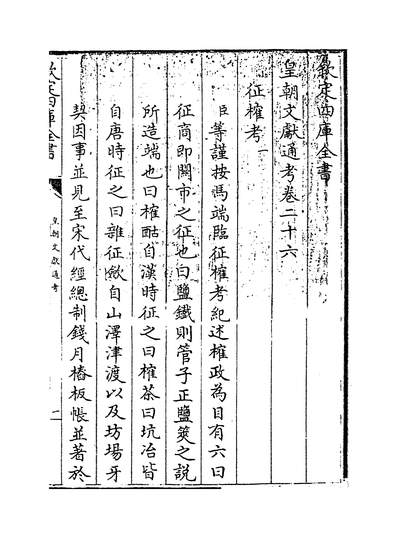 欽定四庫全書
皇朝文獻通考卷二十六
征榷考一
臣等謹按馬端臨征榷考紀述榷政為目有六曰
征商即關市之征也曰鹽鐵則管子正鹽筴之說
所造端也曰榷酤自漢時征之曰榷茶曰坑冶皆
自唐時征之曰雜征斂自山澤津渡以及坊場牙
契因事並見至宋代經總制錢月樁板帳並著於
欽定四庫全書
皇朝文獻通考